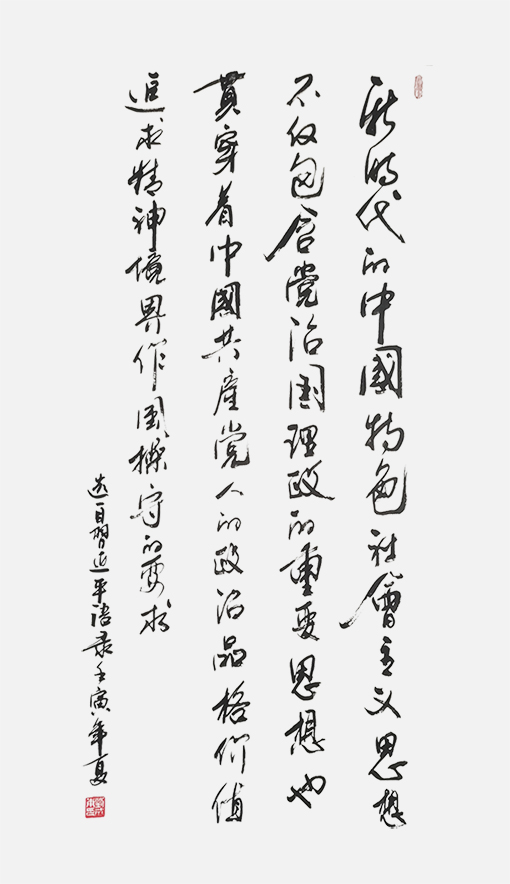 新時代的中國特色社會主义思想
不仅包含党治国理政的重要思想也
貫穿着中國共產党人的政治品格价值
追求精神境界作風操守的要求
选自習近平语录壬寅年夏